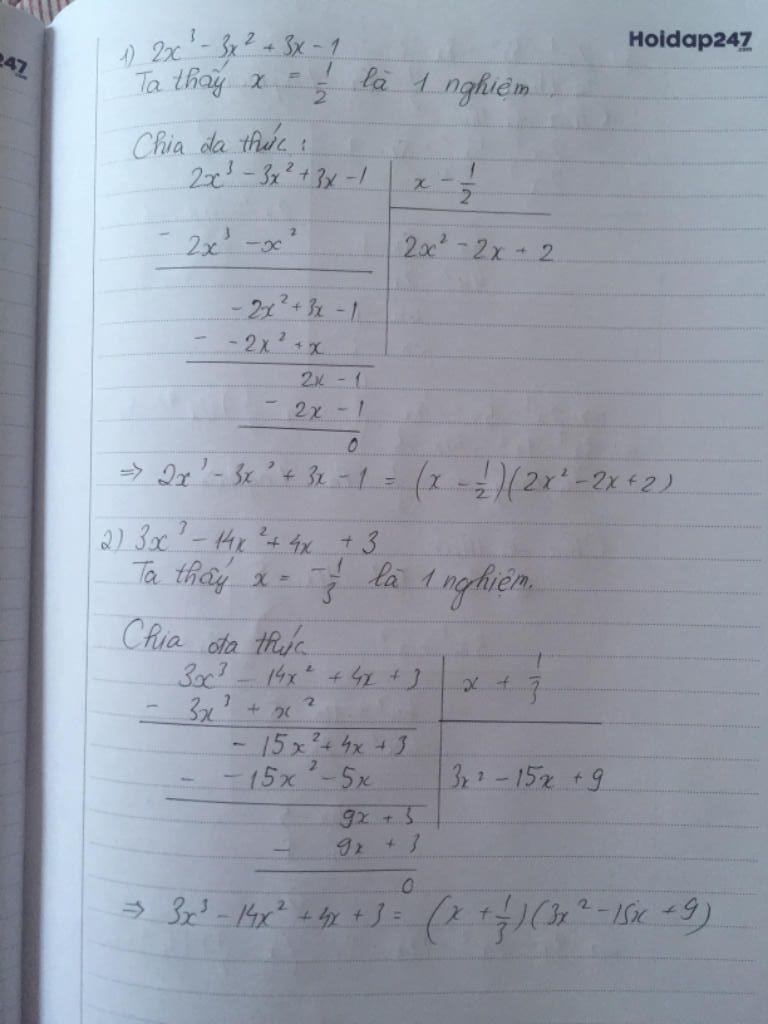 Hoidap247
.com
247
1) 2x³ - 3x² + 3x - 1
Ta thấy x = 1/2 là 1 nghiệm
Chia đa thức :
2x³ - 3x² + 3x - 1 | x - 1/2
- 2x³ - x² | 2x² - 2x + 2
- 2x² + 3x - 1
- - 2x² + x
2x - 1
- 2x - 1
0
=> 2x³ - 3x² + 3x - 1 = (x - 1/2)(2x² - 2x + 2)
2) 3x³ - 14x² + 4x + 3
Ta thấy x = - 1/3 là 1 nghiệm.
Chia đa thức
3x³ - 14x² + 4x + 3 | x + 1/3
- 3x³ + x²
- 15x² + 4x + 3
- - 15x² - 5x | 3x² - 15x + 9
9x + 3
- 9x + 3
0
=> 3x³ - 14x² + 4x + 3 = (x + 1/3)(3x² - 15x + 9)